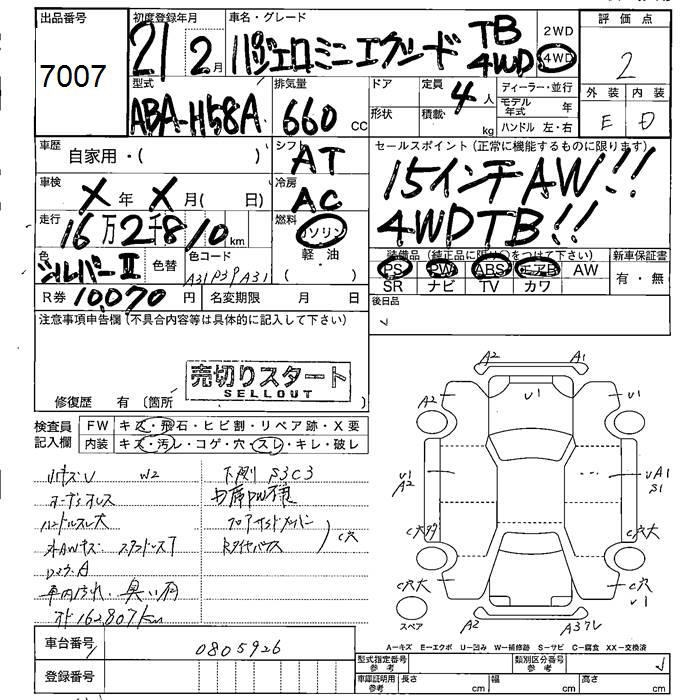 出品番号
7007
初度登録年月
21 2月
車名・グレード
パジェロミニ エクシード TB 4WD
2WD
4WD
評価点
2
外装 内装
E D
型式
ABA-H58A
排気量
660 CC
ドア
形状
定員 4人
積載 kg
ディーラー・並行
モデル年式 年
ハンドル 左・右
車歴
自家用・( )
シフト
AT
セールスポイント(正常に機能するものに限ります)
15インチAW!!
4WD TB!!
車検
X年 X月( 日)
冷房
AC
走行
16万2千810km
燃料
ガソリン
軽・油
( )
色
シルバーII
色替
色コード
A31P39A31
装備品(純正品に限り○をつけて下さい)
PS PW ABS エアB AW
SR ナビ TV カワ
新車保証書
有・無
R券 10,070円
名変期限 月 日
後日品
注意事項申告欄(不具合内容等は具体的に記入して下さい)
売切りスタート
SELLOUT
修復歴 有(箇所 )
検査員記入欄
FW キズ・飛石・ヒビ割・リペア跡・X要
内装 キズ・汚レ・コゲ・穴・スレ・キレ・破レ
W2
下廻り S3C3
オーディオレス
ハンドルスレ大
C穴
車内汚れ、臭い有
メーター162,807km
A2 A1
A2 U1 U1
U1
A2
UA1
S1
C穴大
C穴大 C穴
U1
A2
スペア
A-キズ E-エクボ U-凹み W-補修跡 S-サビ C-腐食 XX-交換済
車台番号
0805926
登録番号
型式指定番号
参考
類別区分番号
参考
車庫証明用
参考
長さ cm 幅 cm 高さ cm